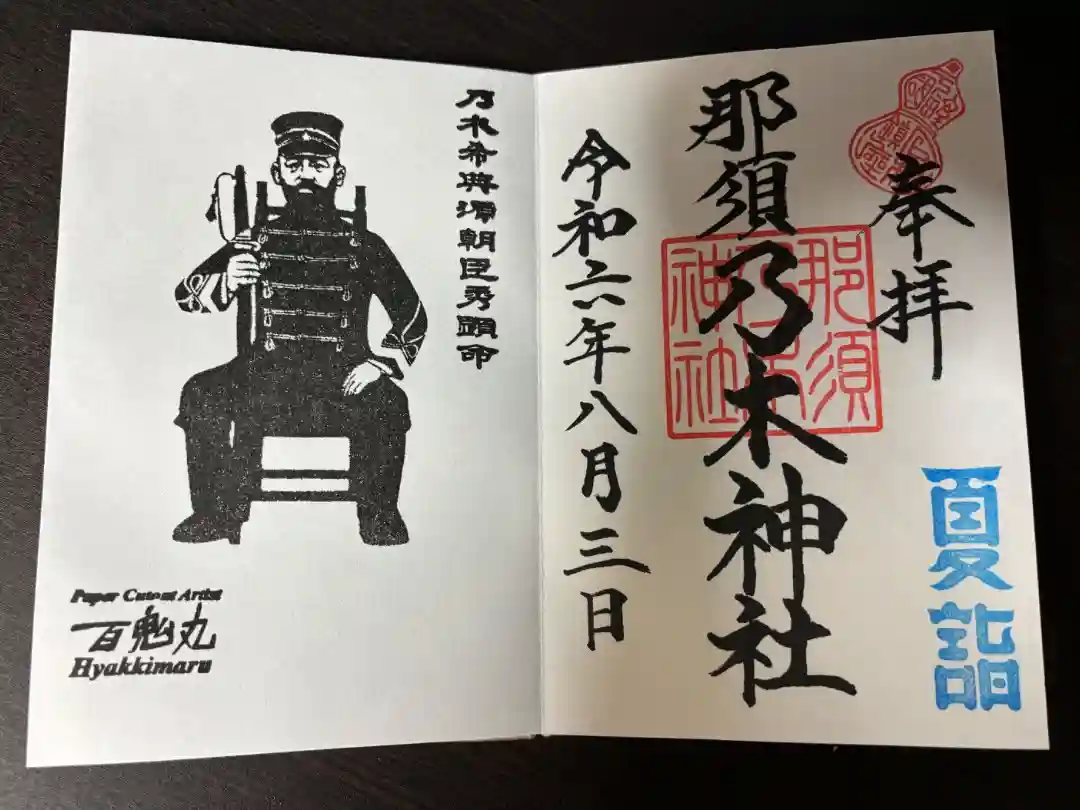 奉拝
那須乃木神社
那須乃木神社
夏詣
令和六年八月三日
乃木希典源朝臣秀顕命
Paper Cutout Artist
百鬼丸
Hyakkimaru